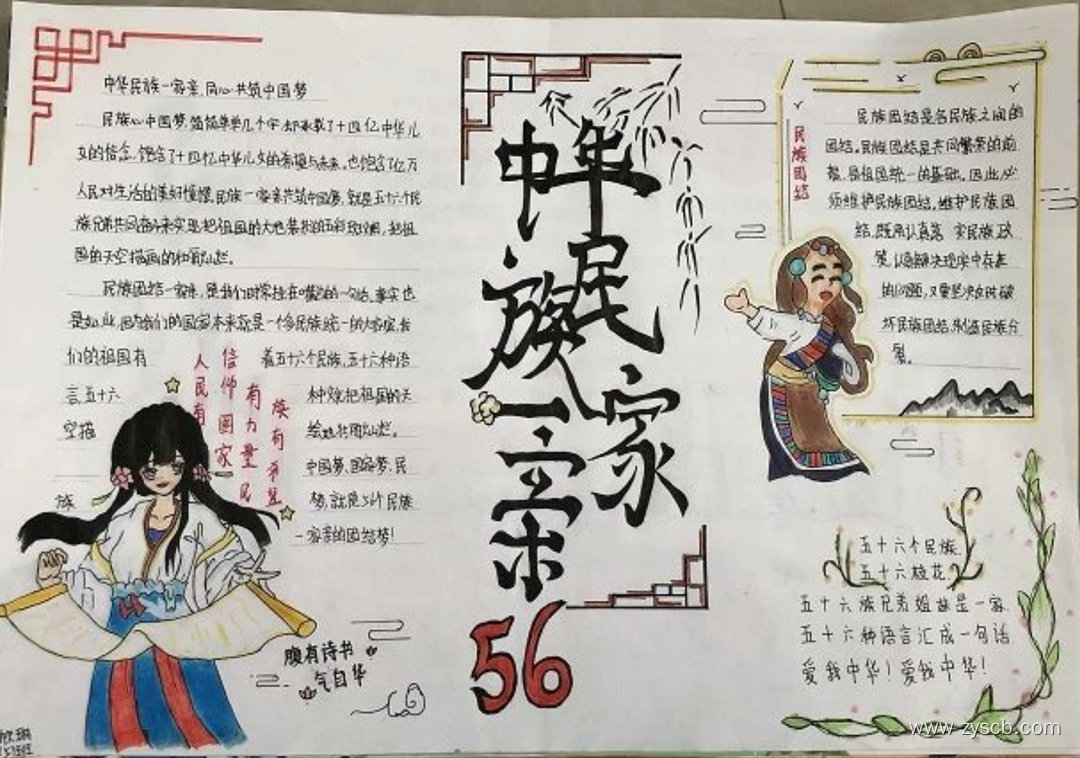 中华民族一家亲，同心共筑中国梦
民族心中国梦，简简单单几个字，却承载了十四亿中华儿
女的信念，饱含了十四亿中华儿女的希望与未来，也饱含了亿万
人民对生活的美好憧憬，民族一家亲共筑中国梦，就是五十六个民
族兄弟共同奋斗来实现，把祖国的大地
国的天空描画的壮丽灿烂。
民族团结一家亲，是我们时常挂在嘴边的一句话，事实也
是如此，因为我们的国家本来就是一个多民族统一的大家庭，我
们的祖国有
着五十六个民族，五十六种语
言，五十六
种
把祖国的天
空描
绘
灿烂。
中国梦，国家梦，民
族
梦，就是56个民族
一家亲的团结梦！
人民有
信仰 国家
有力量 民
族有希望
腹有诗书
气自华
中华民族一家亲
56
民族团结
民族团结是各民族之间的
团结。民族团结是共同繁荣的前
提，是祖国统一的基础。因此必
须维护民族团结。维护民族团
结，既要认真落实民族政
策，认真解决现实中存在
的问题，又要坚决反对破
坏民族团结，制造民族分
裂。
五十六个民族，
五十六枝花，
五十六族兄弟姐妹是一家，
五十六种语言汇成一句话
爱我中华！爱我中华！
www.zyscb.com